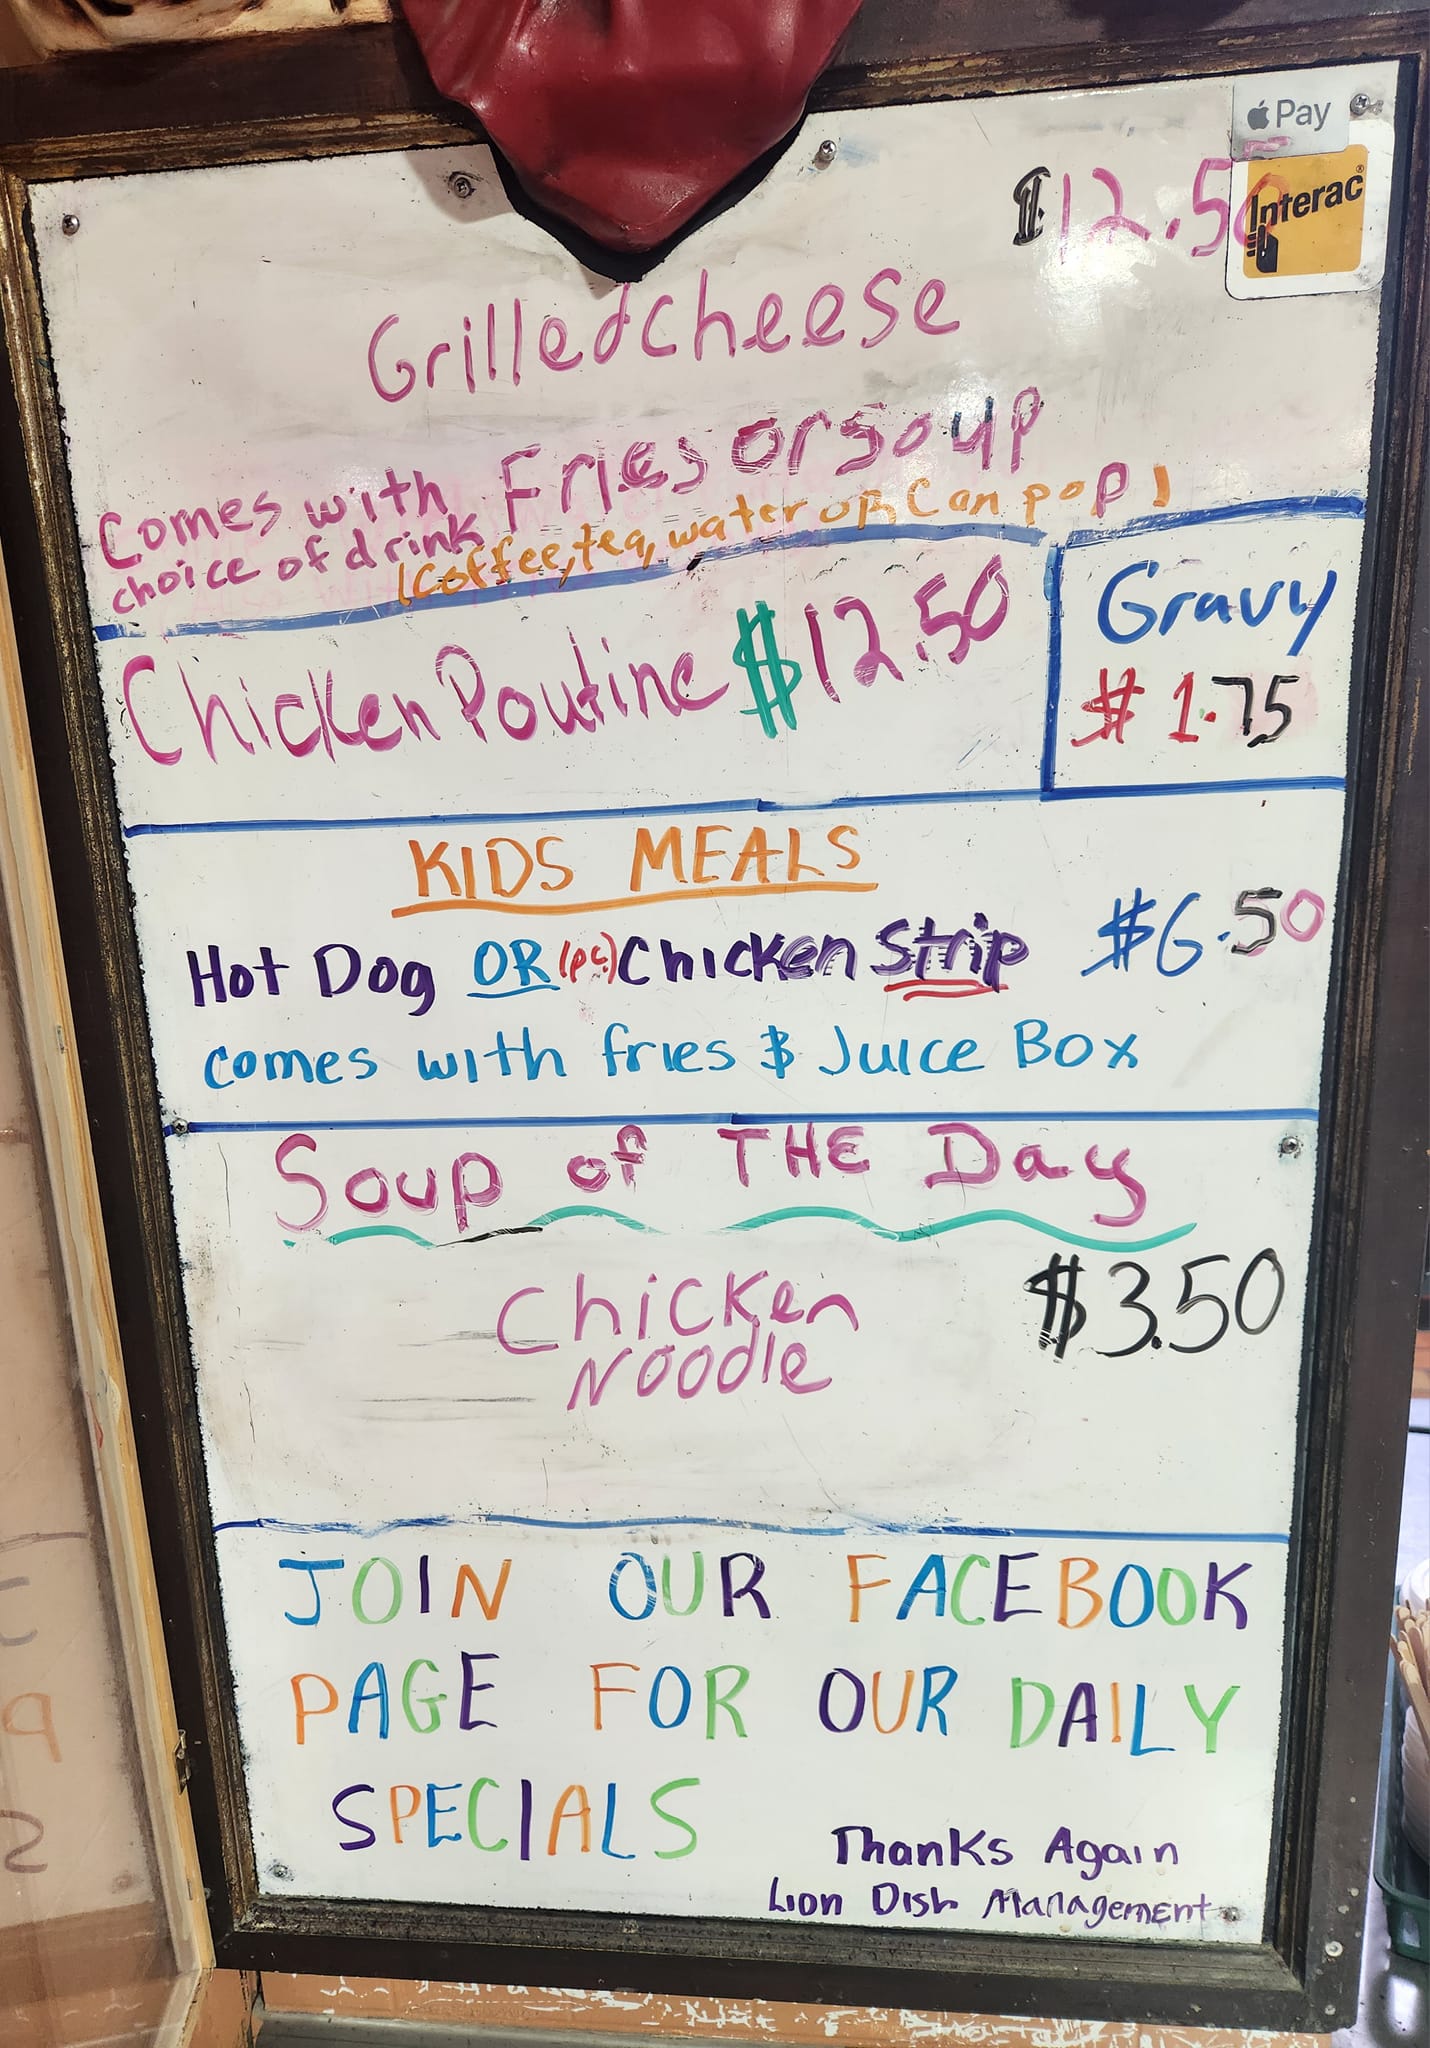 Pay
$12.50
Interac
Grilled cheese
Comes with Fries or soup
choice of drink (Coffee, tea, water or Can pop)
Chicken Poutine $12.50
Gravy
$1.75
KIDS MEALS
Hot Dog OR (1pc.) Chicken Strip $6.50
comes with fries & Juice Box
Soup of THE Day
Chicken $3.50
Noodle
JOIN OUR FACEBOOK
PAGE FOR OUR DAILY
SPECIALS
Thanks Again
Lion Dish Management